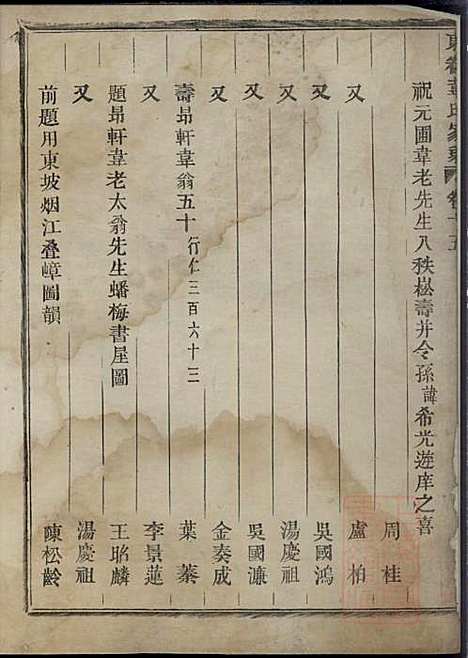 東眷韋氏家乘 卷十五
祝元圃韋老先生八秩崧壽并令孫諱希光遊庠之喜 周桂
又 盧柏
又 吳國鴻
又 湯慶祖
又 吳國濂
又 金奏成
壽昻軒韋翁五十 行仁三百六十三 葉蓁
又 李景蓮
題昻軒韋老太翁先生蟠梅書屋圖 王昭麟
又 湯慶祖
前題用東坡烟江叠嶂圖韻 陳松齡